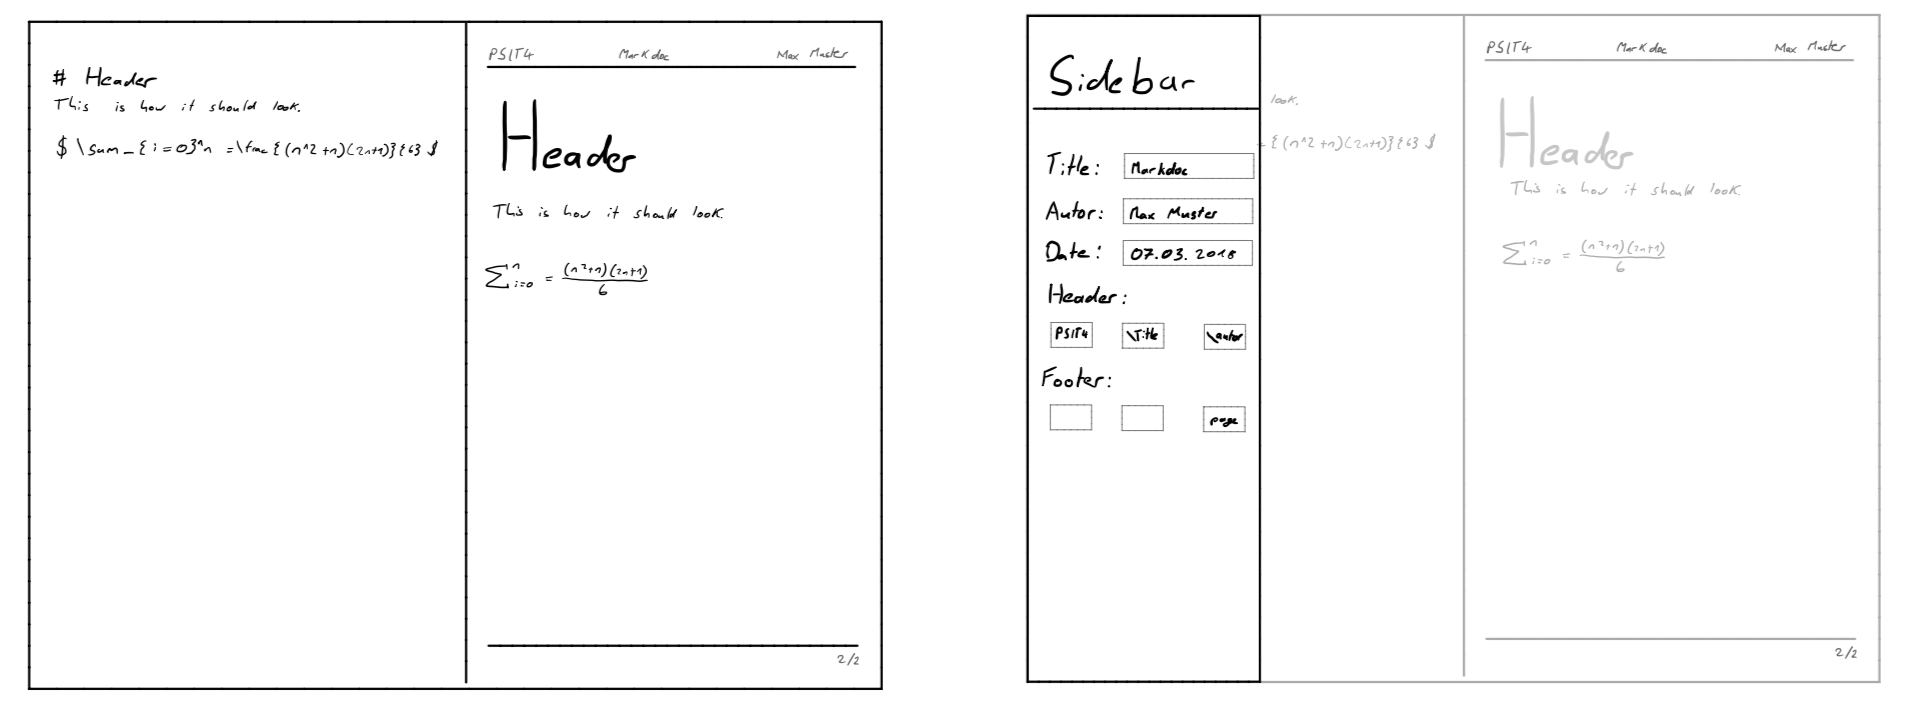 # Header
This is how it should look.
$ \sum_{i=0}^n =\frac{(n^2+n)(2n+1)}{6} $
PSIT4 Markdoc Max Muster
Header
This is how it should look.
∑ⁿᵢ₌₀ = (n²+n)(2n+1) / 6
2/2
Sidebar
Title: Markdoc
Autor: Max Muster
Date: 07.03.2018
Header:
PSIT4 \Title \autor
Footer:
page
look.
={(n^2+n)(2n+1)}{6} $
PSIT4 Markdoc Max Muster
Header
This is how it should look.
∑ⁿᵢ₌₀ = (n²+n)(2n+1) / 6
2/2